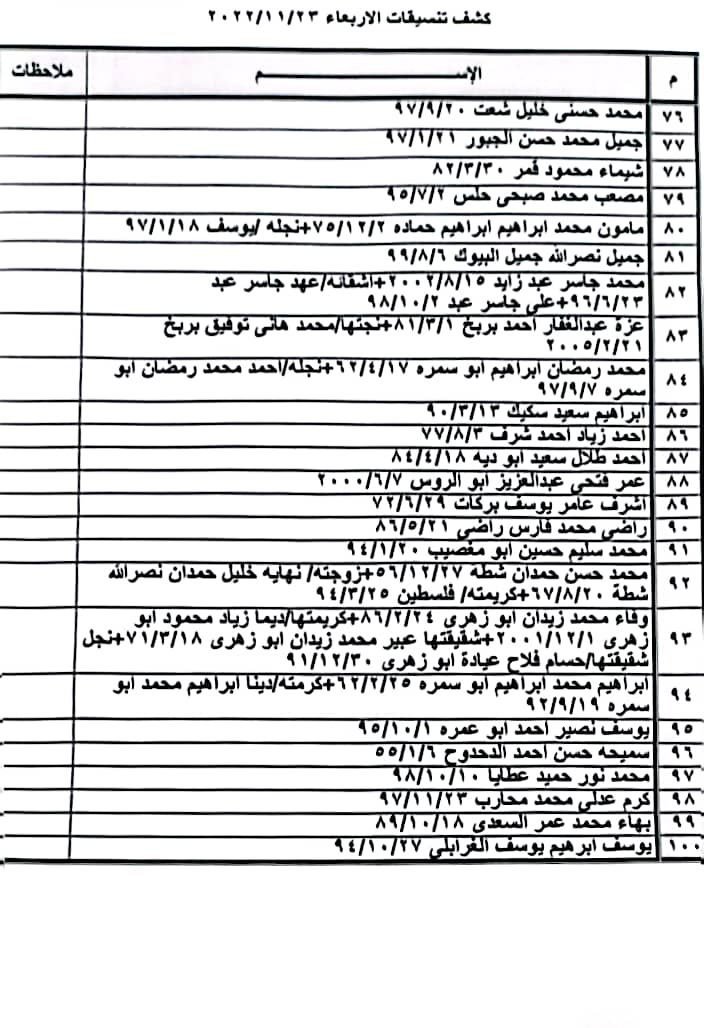 كشف تنسيقات الاربعاء ٢٠٢٢/١١/٢٣
م الإســـــــم ملاحظات
٧٦ محمد حسنى خليل شعت ٩٧/٩/٢٠
٧٧ جميل محمد حسن الجبور ٩٧/١/٢١
٧٨ شيماء محمود قمر ٨٢/٣/٣٠
٧٩ مصعب محمد صبحى حلس ٩٥/٧/٢
٨٠ مامون محمد ابراهيم ابراهيم حماده ٧٥/١٢/٢+نجله /يوسف ٩٧/١/١٨
٨١ جميل نصرالله جميل البيوك ٩٩/٨/٦
٨٢ محمد جاسر عبد زايد ٢٠٠٢/٨/١٥+اشقائه/عهد جاسر عبد
٩٦/٦/٢٣+على جاسر عبد ٩٨/١٠/٢
٨٣ عزة عبدالغفار احمد بربخ ٨١/٣/١+نجتها/محمد هانى توفيق بربخ
٢٠٠٥/٢/٢١
٨٤ محمد رمضان ابراهيم ابو سمره ٦٢/٤/١٧+نجله/احمد محمد رمضان ابو
سمره ٩٧/٩/٧
٨٥ ابراهيم سعيد سكيك ٩٠/٣/١٣
٨٦ احمد زياد احمد شرف ٧٧/٨/٣
٨٧ احمد طلال سعيد ابو ديه ٨٤/٤/١٨
٨٨ عمر فتحى عبدالعزيز ابو الروس ٢٠٠٠/٦/٧
٨٩ اشرف عامر يوسف بركات ٧٢/٦/٢٩
٩٠ راضى محمد فارس راضى ٨٦/٥/٢١
٩١ محمد سليم حسين ابو مغصيب ٩٤/١/٢٠
٩٢ محمد حسن حمدان شطة ٥٦/١٢/٢٧+زوجته/ نهايه خليل حمدان نصرالله
شطة ٦٧/٨/٢٠+كريمته/ فلسطين ٩٤/٣/٢٥
٩٣ وفاء محمد زيدان ابو زهرى ٨٦/٢/٢٤+كريمتها/ديما زياد محمود ابو
زهرى ٢٠٠١/١٢/١+شقيقتها عبير محمد زيدان ابو زهرى ٧١/٣/١٨+نجل
شقيقتها/حسام فلاح عيادة ابو زهرى ٩١/١٢/٣٠
٩٤ ابراهيم محمد ابراهيم ابو سمره ٦٢/٢/٢٥+كرمته/دينا ابراهيم محمد ابو
سمره ٩٢/٩/١٩
٩٥ يوسف نصير احمد ابو عمره ٩٥/١٠/١
٩٦ سميحه حسن احمد الدحدوح ٥٥/١/٦
٩٧ محمد نور حميد عطايا ٩٨/١٠/١٠
٩٨ كرم عدلى محمد محارب ٩٧/١١/٢٣
٩٩ بهاء محمد عمر السعدى ٨٩/١٠/١٨
١٠٠ يوسف ابرهيم يوسف الغرابلى ٩٤/١٠/٢٧